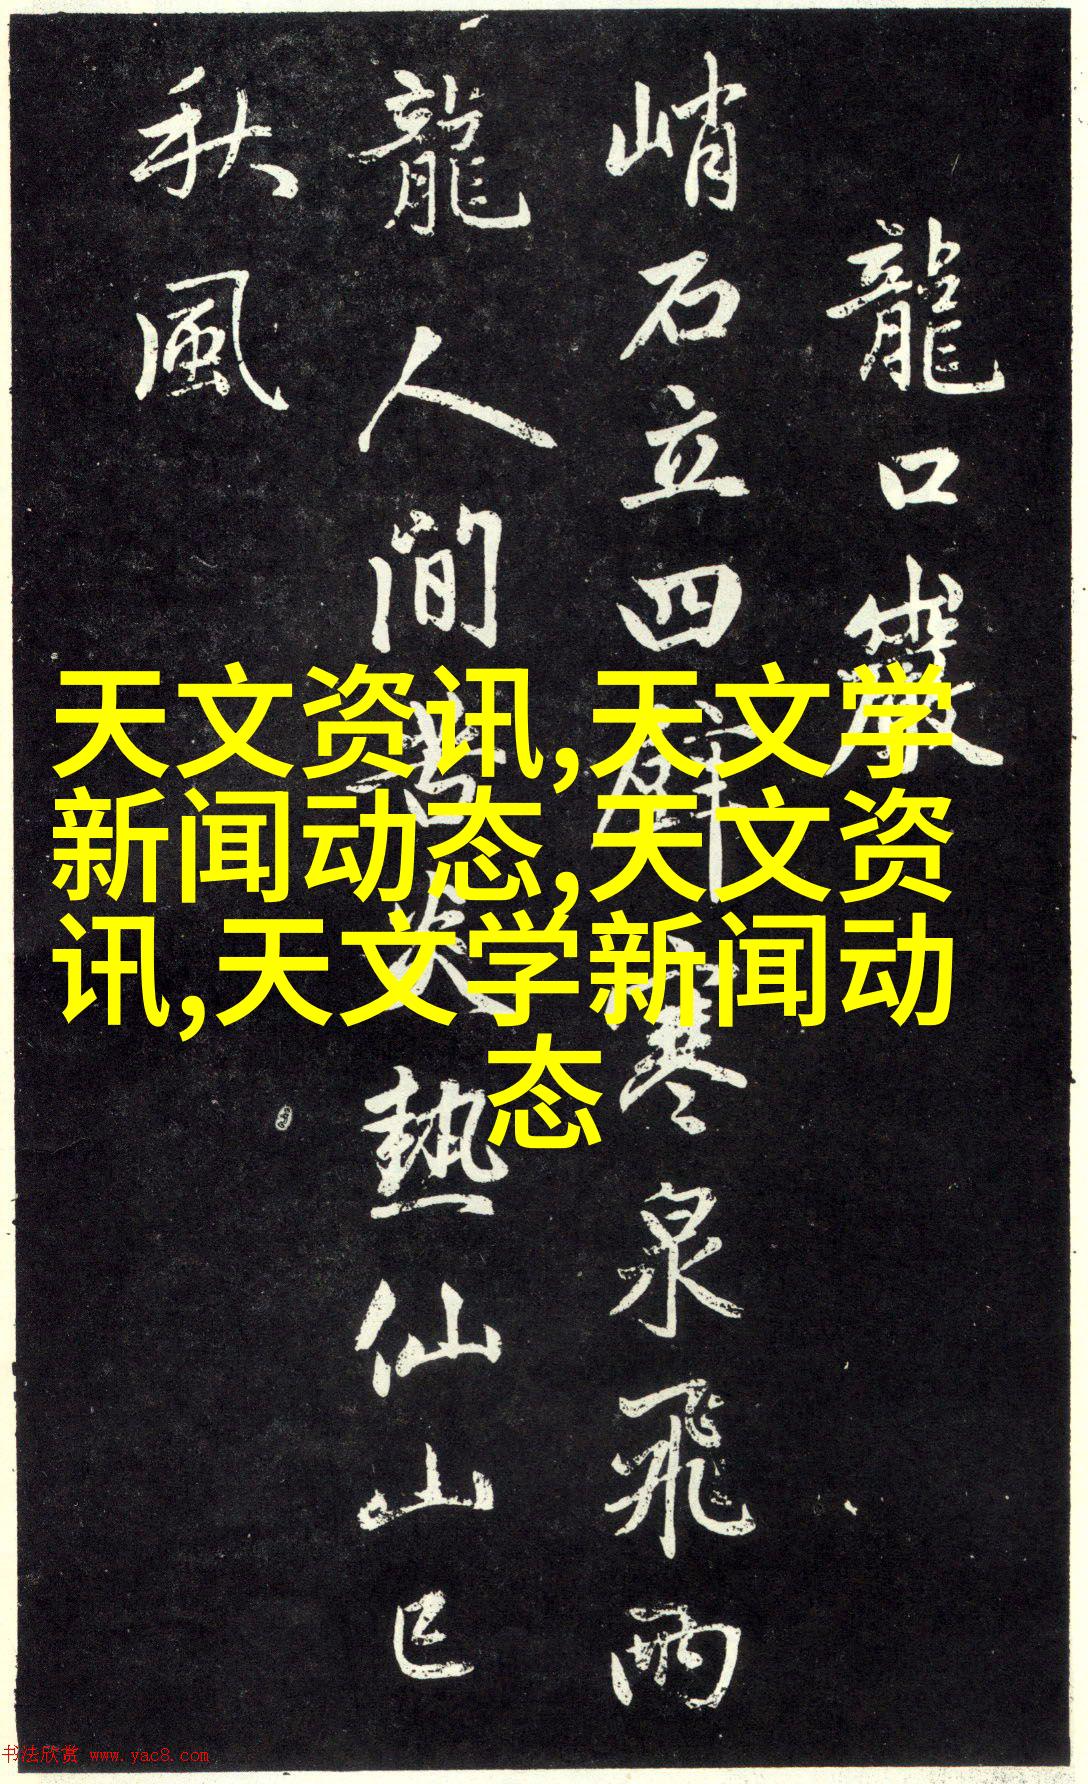 龍口巖
峭石立四壁寒泉飛兩
龍人間苦炎熱仙山已
秋風
天文资讯,天文学
新闻动态,天文资
讯,天文学新闻动
态
书法欣赏 www.yac8.com